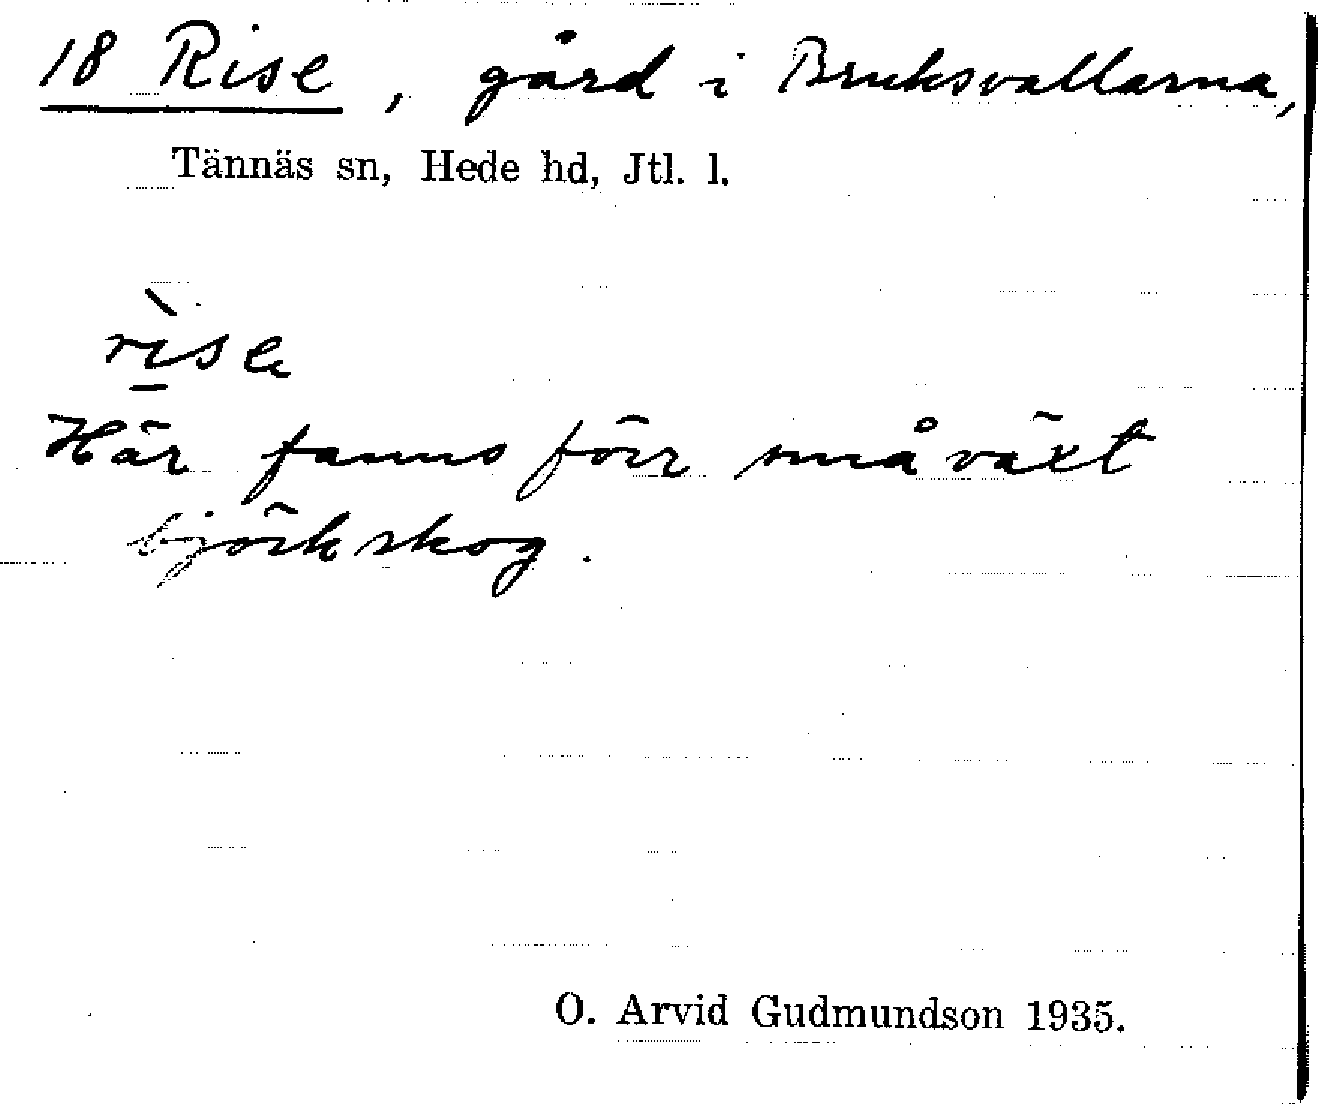 18 Rise, gård i Bruksvallarna,
Tännäs sn, Hede hd, Jtl. l.
rìse
Här fanns förr småväxt
björkskog.
O. Arvid Gudmundson 1935.